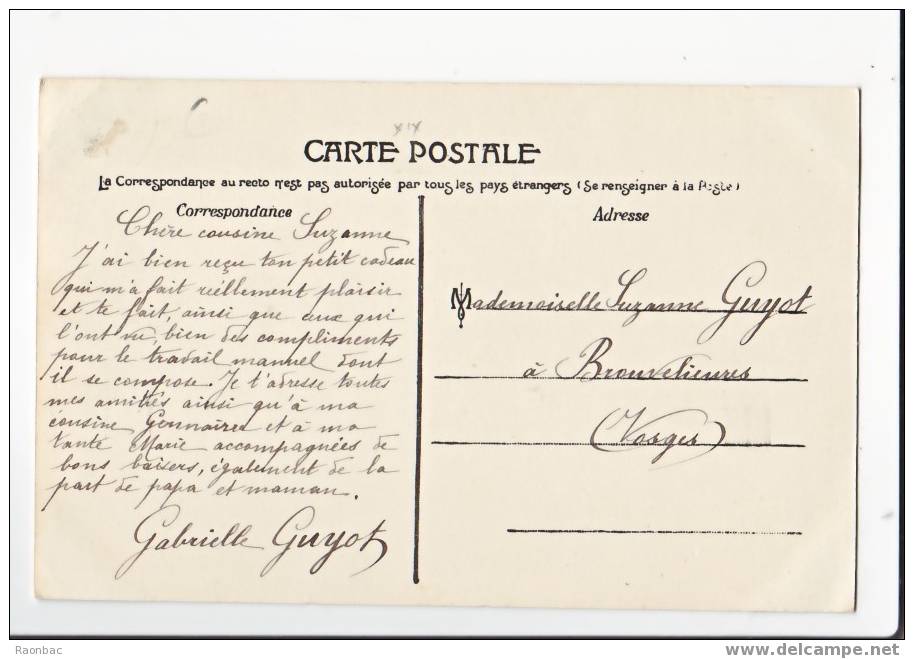 CARTE POSTALE
La Correspondance au recto n'est pas autorisée par tous les pays étrangers (Se renseigner à la Poste)
Correspondance
Chère cousine Suzanne
J'ai bien reçu ton petit cadeau
qui m'a fait réellement plaisir
et te fait, ainsi que ceux qui
l'ont vu, bien des compliments
pour le travail manuel dont
il se compose. Je t'adresse toutes
mes amitiés ainsi qu'à ma
cousine et à ma
tante Marie accompagnées de
bons baisers, également de la
part de papa et maman.
Gabrielle Guyot
Adresse
Mademoiselle Suzanne Guyot
à Brouvelieures
(Vosges)
Raonbac
delcampe.net